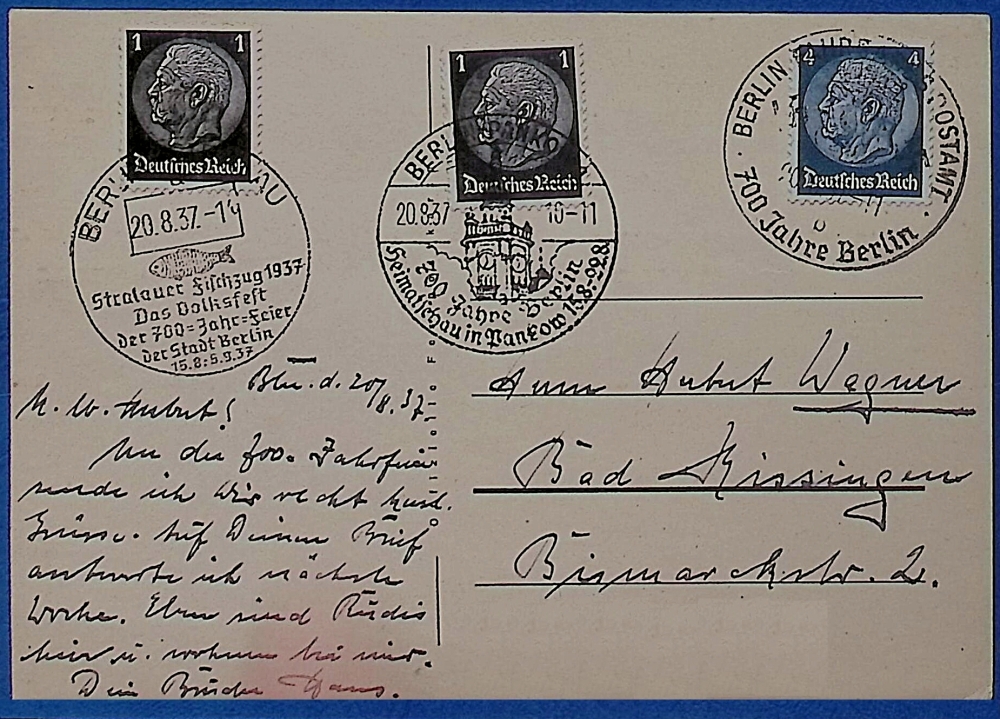 1 1
Deutsches Reich
BERLIN
20.8.37.-14
Stralauer Fischzug 1937
Das Volksfest
der 700=Jahr=Feier
der Stadt Berlin
15.8.-5.9.37
1 1
Deutsches Reich
BERLIN-PANKOW
20.8.37 10-11
700 Jahre Berlin
Heimatschau in Pankow 15.8.-22.8.
4 4
Deutsches Reich
BERLIN POSTAMT
700 Jahre Berlin
Bln. d. 20/8.37
M. lb. Hubert!
Von der 700. Jahrfeier
sende ich Dir recht herzl.
Grüsse. Auf Deinen Brief
antworte ich nächste
Woche. Eben sind Rudis
hier u. wohnen bei mir.
Dein Bruder Hans.
Herrn Hubert Wegner
Bad Kissingen
Bismarckstr. 2.